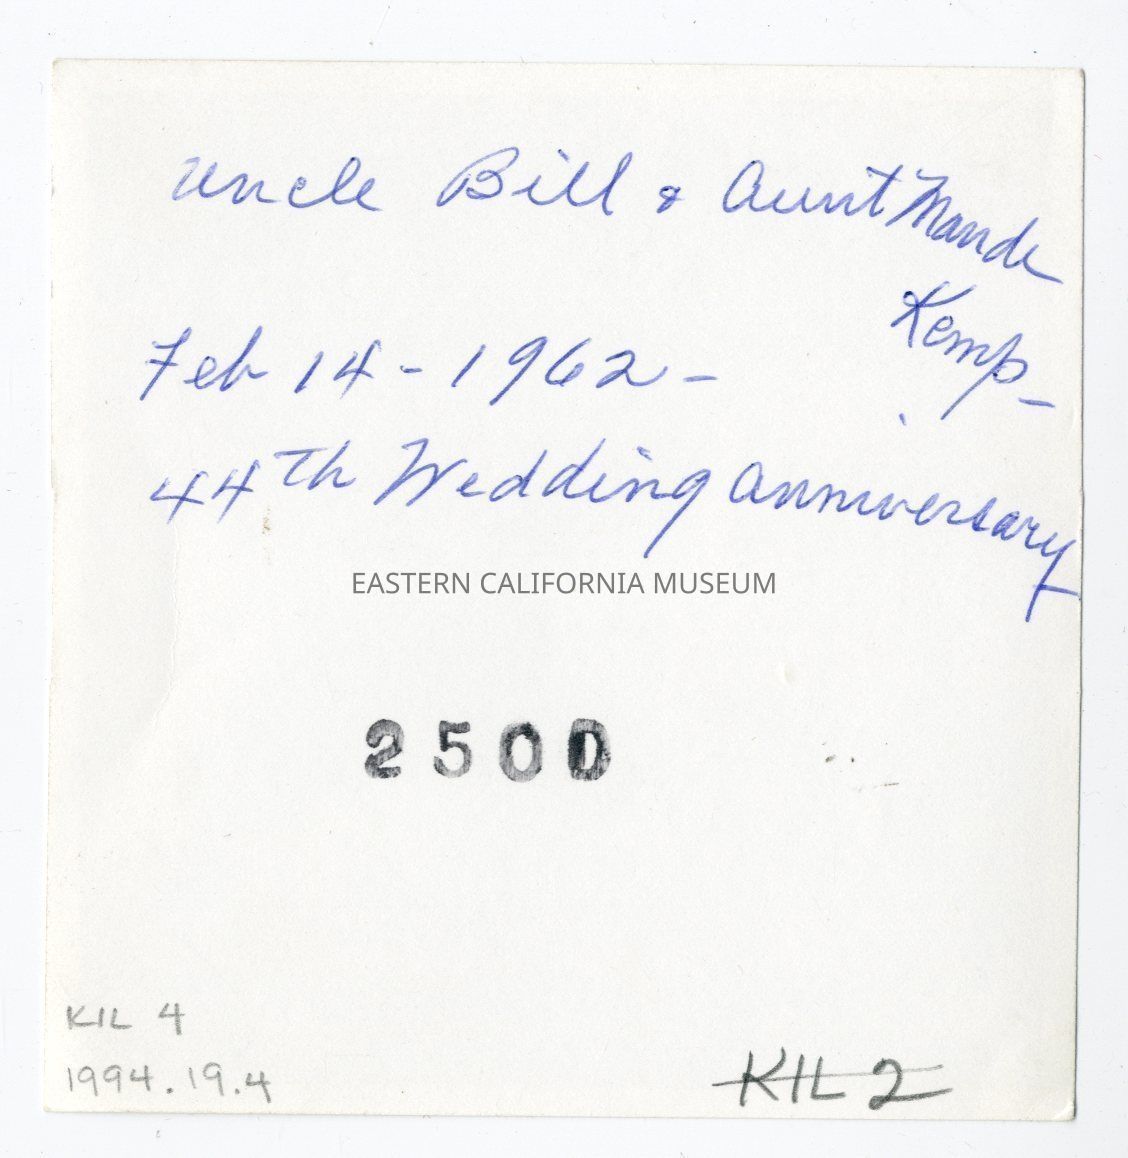 Uncle Bill & Aunt Maude
Kemp -
Feb 14 - 1962 -
44Th Wedding Anniversary
EASTERN CALIFORNIA MUSEUM
2500
KIL 4
1994.19.4
KIL 2